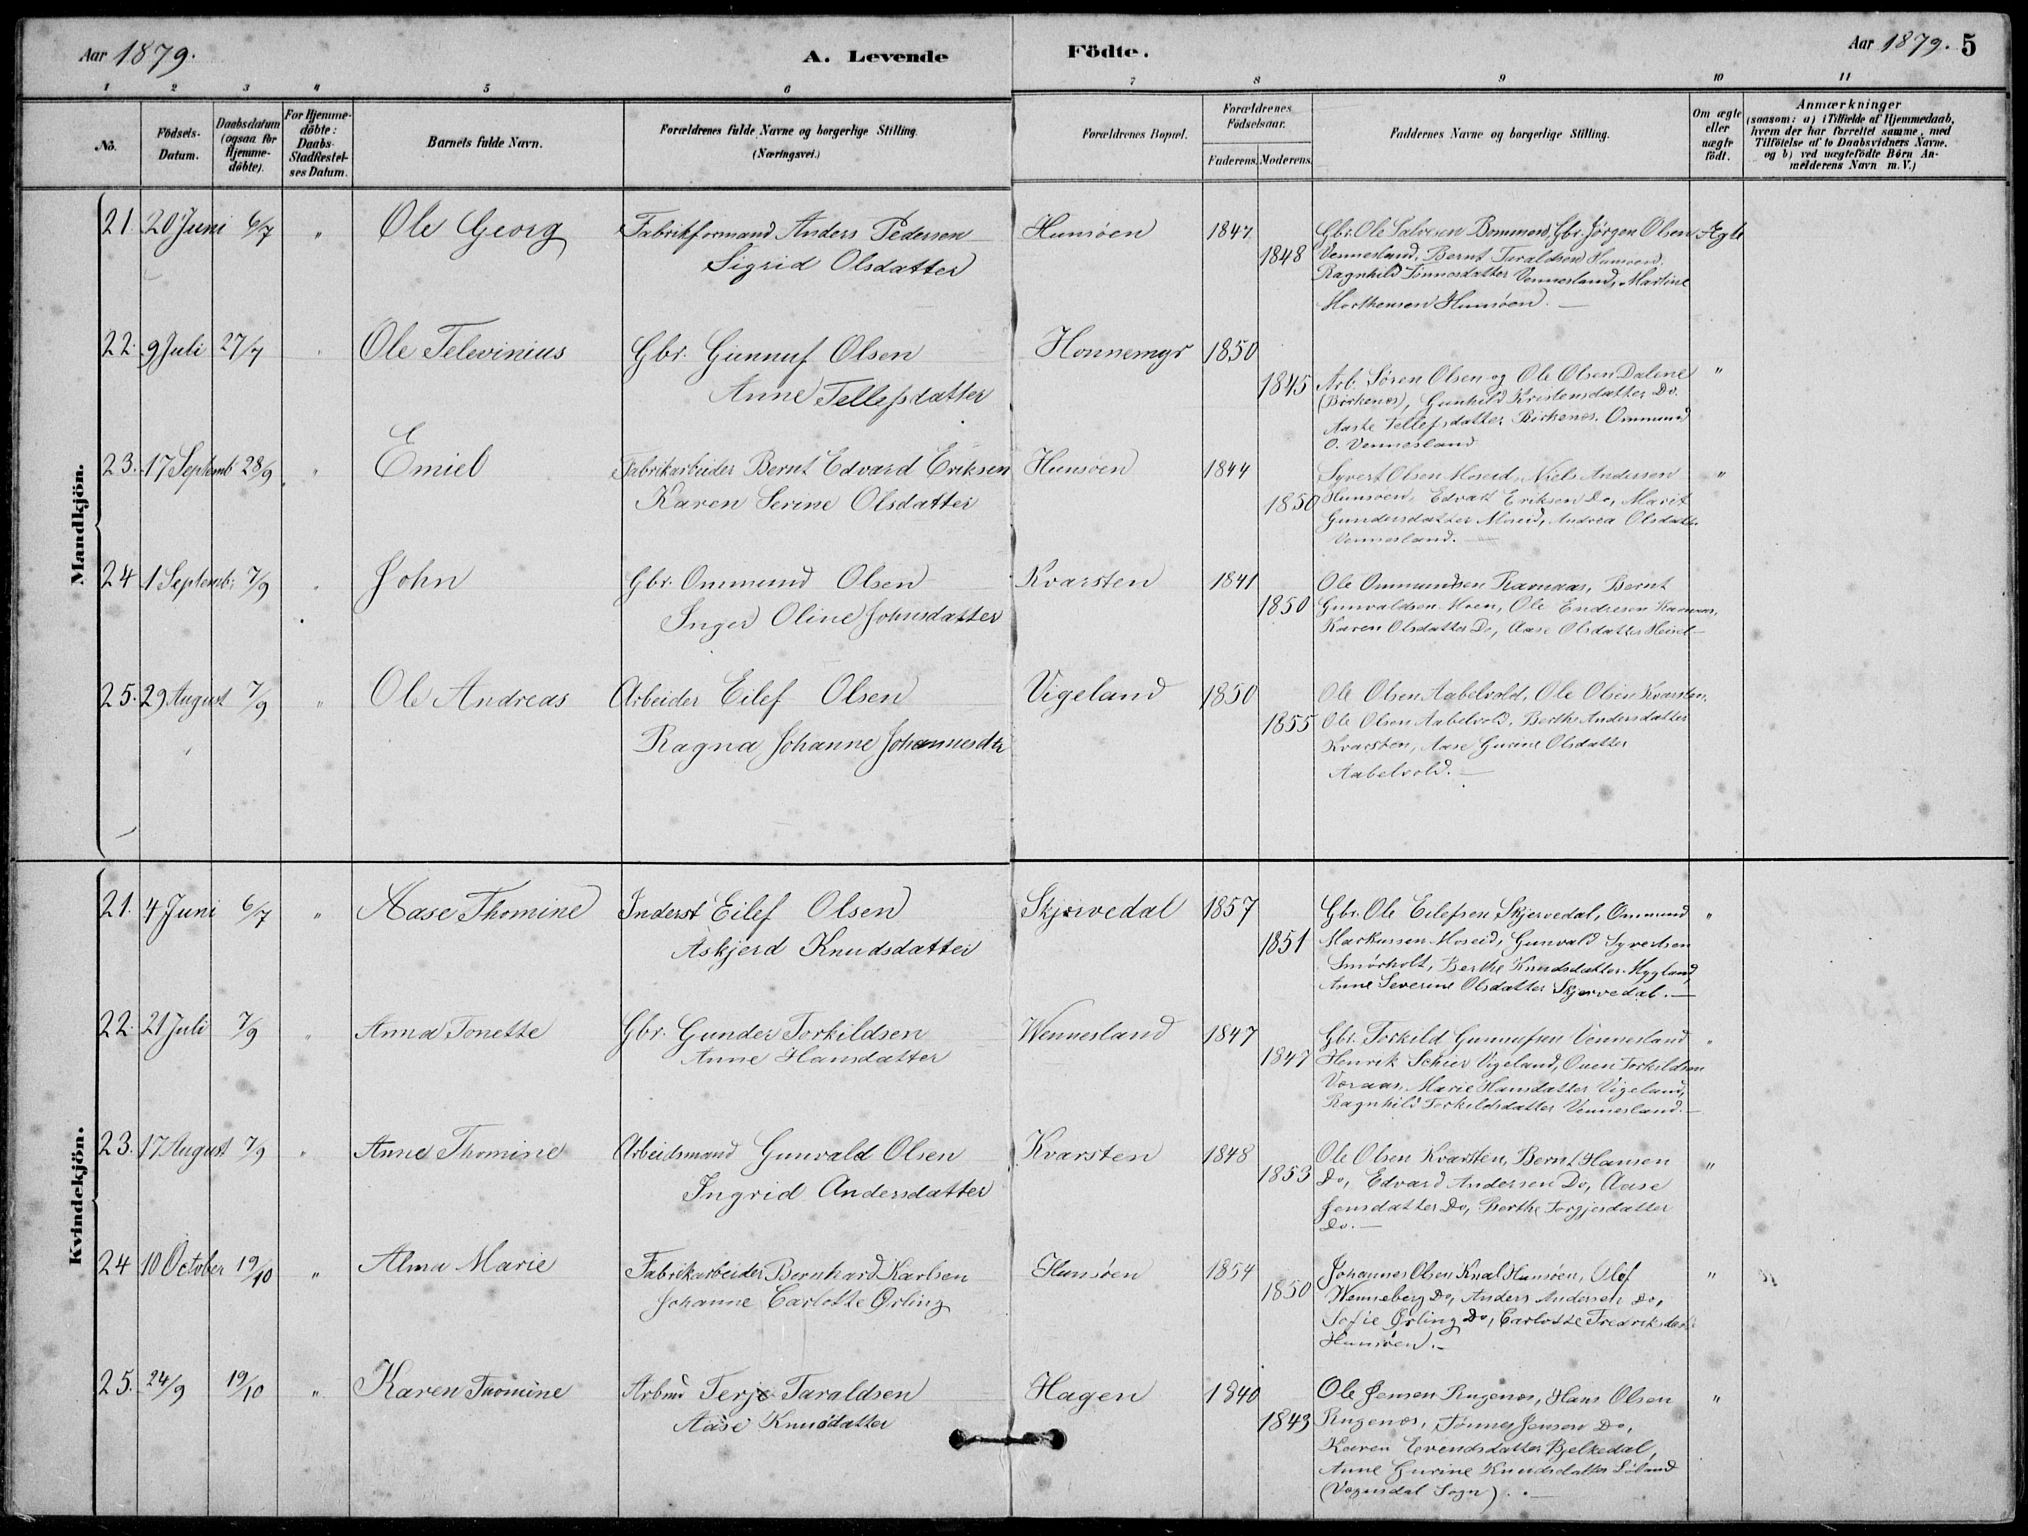 Aar 1879. A. Levende Födte. Aar 1879. 5
1 2 3 4 5 6 7 8 9 10 11
No. Födsels-Datum. Daabsdatum (ogsaa for Hjemme-döbte). For Hjemme-döbte: Daabs-Stadfæstel-ses Datum. Barnets fulde Navn. Forældrenes fulde Navne og borgerlige Stilling. (Næringsvei.) Forældrenes Bopæl. Forældrenes Födselsaar. Faderens. Moderens. Faddernes Navne og borgerlige Stilling. Om ægte eller uægte født. Anmærkninger (saasom: a) i Tilfælde af Hjemmedaab, hvem der har forrettet samme, med Tilföielse af to Daabsvidners Navne, og b) ved uægtefödte Börn An-melderens Navn m.V.)
Mandkjön.
21. 20 Juni 6/7 " Ole Georg Fabrikformand Anders Pedersen Hunsøen 1847 Gbr. Ole Salvesen Dommen, Gbr. Jörgen Olsen Ægte
Sigrid Olsdatter 1848 Vennesland, Bernt Taraldsen Hunsøen.
Ragnhild Tønnesdatter Vennesland, Martine
Morthensen Hunsøen.
22. 9 Juli 27/7 " Ole Televinius Gbr. Gunnuf Olsen Honnemyr 1850
Anne Tellefsdatter 1845 Arb. Sören Olsen og Ole Olsen Dalene "
(Birkenes), Gunhild Kristensdatter Do.
Aaste Tellefsdatter Birkenes. Ommund
O. Vennesland
23. 17 Septemb 28/9 " Emiel Fabrikarbeider Bernt Edvard Eriksen Hunsöen 1844 Syvert Olsen Moseid, Niels Andersen "
Karen Serine Olsdatter 1850 Hunsøen, Edvart Eriksen Do, Marit
Gundersdatter Moseid, Andrea Olsdatter
Vennesland.
24 1 Septemb: 7/9 " John Gbr. Ommund Olsen Kvarsten 1841 Ole Ommundsen Ravnaas, Bernt
Inger Oline Johnsdatter 1850 Gunvaldsen Moen, Ole Endresen Ravnaas,
Karen Olsdatter Do, Aase Olsdatter Heisel
25. 29 August 7/9 " Ole Andreas Arbeider Eilef Olsen Vigeland 1850 Ole Olsen Aabelvold, Ole Olsen Kvarsten,
Ragna Johanne Johannesdtr 1855 Ole Olsen Aabelvold, Berthe Andersdatter
Kvarsten, Aase Gurine Olsdatter
Aabelvold.
Kvindekjön.
21. 4 Juni 6/7 " Aase Thomine Inderst Eilef Olsen Skjervedal 1857 Gbr. Ole Eilefsen Skjervedal, Ommund "
Askjerd Knudsdatter 1851 Markussen Moseid, Gunvald Syvertsen
Smörholt, Berthe Knudsdatter Mygland,
Anne Severine Olsdatter Skjervedal.
22. 21 Juli 7/9 " Anna Tonette Gbr. Gunder Torkildsen Wennesland 1847 Gbr. Torkild Gunnufsen Vennesland "
Anne Hansdatter 1847 Henrik Schier Vigeland, Ouen Torkildsen
Voraas, Marie Hansdatter Vigeland,
Ragnhild Torkildsdatter Vennesland.
23. 17 August 7/9 " Anne Thomine Arbeidsmand Gunvald Olsen Kvarsten 1848 Ole Olsen Kvarsten, Bernt Hansen "
Ingrid Andersdatter 1853 Do, Edvard Andersen Do, Aase
Jensdatter Do, Berthe Torgjesdatter
Do.
24 10 October 19/10 " Alma Marie Fabrikarbeider Bernhard Karlsen Hunsöen 1854 Johannes Olsen Kval Hunsöen, Olof "
Johanne Carlotte Ørling 1850 Wenneberg Do, Anders Andersen Do,
Sofie Ørling Do, Carlotte Fredriksdatr
Hunsöen.
25. 24/9 19/10 " Karen Thomine Arbmd Terje Taraldsen Hagen 1840 Ole Jensen Rugenes, Hans Olsen "
Aase Knudsdatter 1843 Rugenes, Tønnes Jensen Do,
Karen Evendsdatter Bjelkedal,
Anne Gurine Knudsdatter Löland
(Vegusdal Sogn).